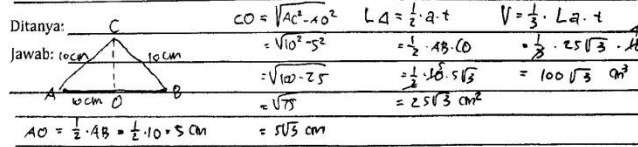 Ditanya:
Jawab:
C
10cm 10cm
A O B
10cm
AO = 1/2 · AB = 1/2 · 10 = 5 cm
CO = √AC² - AO²
= √10² - 5²
= √100 - 25
= √75
= 5√3 cm
L△ = 1/2 · a · t
= 1/2 · AB · CO
= 1/2 · 10 · 5√3
= 25√3 cm²
V = 1/3 · La · t
= 1/3 · 25√3 ·
= 100√3 cm³